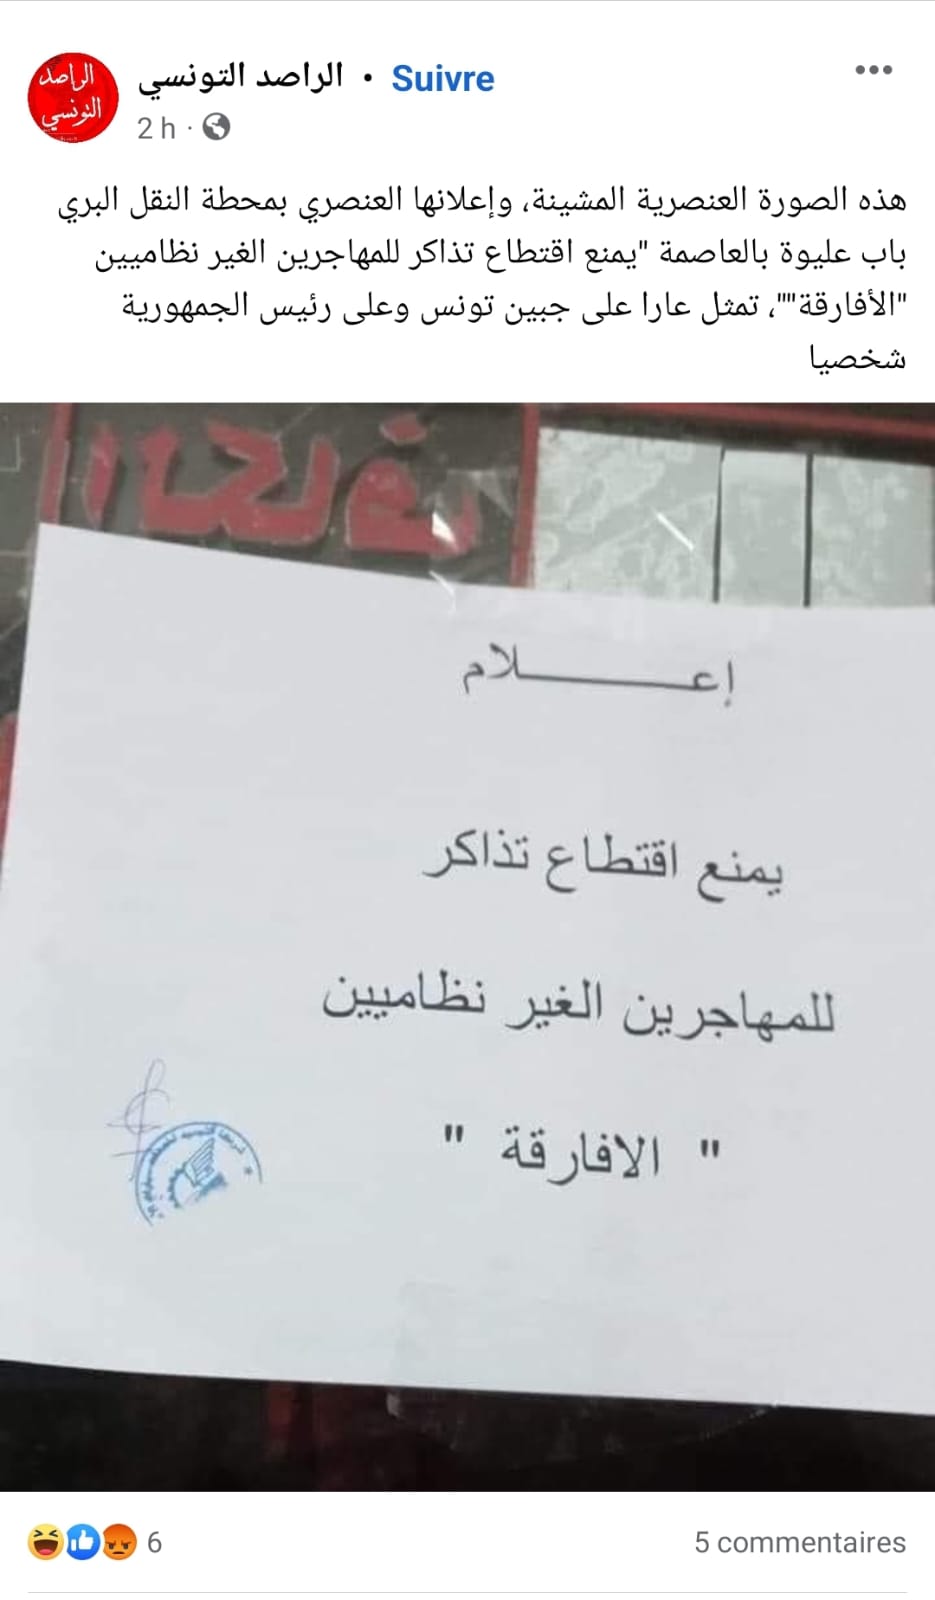 الراصد التونسي
الراصد التونسي • Suivre
2 h ·
هذه الصورة العنصرية المشينة، وإعلانها العنصري بمحطة النقل البري
باب عليوة بالعاصمة "يمنع اقتطاع تذاكر للمهاجرين الغير نظاميين
"الأفارقة""، تمثل عارا على جبين تونس وعلى رئيس الجمهورية
شخصيا
إعـــــــلام
يمنع اقتطاع تذاكر
للمهاجرين الغير نظاميين
" الافارقة "
6
5 commentaires